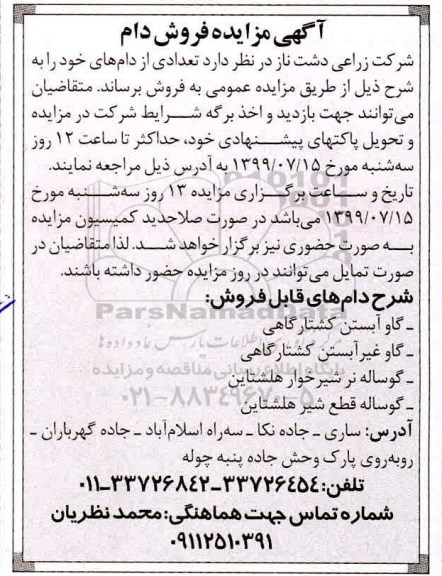 آگهی مزایده فروش دام
شرکت زراعی دشت ناز در نظر دارد تعدادی از دام‌های خود را به
شرح ذیل از طریق مزایده عمومی به فروش برساند. متقاضیان
می‌توانند جهت بازدید و اخذ برگه شرایط شرکت در مزایده
و تحویل پاکتهای پیشنهادی خود، حداکثر تا ساعت ۱۲ روز
سه‌شنبه مورخ ۱۳۹۹/۰۷/۱۵ به آدرس ذیل مراجعه نمایند.
تاریخ و ساعت برگزاری مزایده ۱۳ روز سه‌شنبه مورخ
۱۳۹۹/۰۷/۱۵ می‌باشد در صورت صلاحدید کمیسیون مزایده
به صورت حضوری نیز برگزار خواهد شد. لذا متقاضیان در
صورت تمایل می‌توانند در روز مزایده حضور داشته باشند.
شرح دام‌های قابل فروش:
ParsNamadData
ـ گاو آبستن کشتارگاهی
ـ گاو غیرآبستن کشتارگاهی
پایگاه اطلاع رسانی مناقصه و مزایده
ـ گوساله نر شیرخوار هلشتاین
۰۲۱-۸۸۳۴۹۶۷۰-۵
ـ گوساله قطع شیر هلشتاین
آدرس: ساری ـ جاده نکا ـ سه‌راه اسلام‌آباد ـ جاده گهرباران ـ
روبه‌روی پارک وحش جاده پنبه چوله
تلفن: ۳۳۷۲۶۴۵۴-۳۳۷۲۶۸۴۲-۰۱۱
شماره تماس جهت هماهنگی: محمد نظریان
۰۹۱۱۲۵۱۰۳۹۱